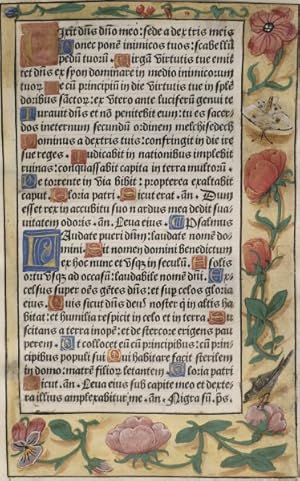 Dixit dñs dño meo: sede a dextris meis
Donec ponã inimicos tuos: scabellũ
pedũ tuorũ. Virgã virtutis tue emit
tet dñs ex syon dominare in medio inimicorum
tuorũ. Tecũ principiũ in die virtutis tue in splẽ
doribus sanctorũ: ex vtero ante luciferũ genui te
Jurauit dñs et nõ penitebit eum: tu es sacer-
dos ineternum secundũ ordinem melchisedech
Dominus a dextris tuis: confringit in die ire
sue reges. Judicabit in nationibus implebit
ruinas: conquassabit capita in terra multorũ.
De torrente in via bibit: propterea exaltabit
caput. Gloria patri. Sicut erat. añ. Dum
esset rex in accubitu suo nardus mea dedit sua-
uitatem odoris. añ. Leua eius. Psalmus
Laudate pueri dñm: laudate nomẽ do
mini. Sit nomen domini benedictum
ex hoc nunc et vsq; in seculũ. A solis
ortu vsq; ad occasũ: laudabile nomẽ dñi. Ex-
celsus super oẽs gẽtes dñs: et sup celos gloria
eius. Quis sicut dñs deus noster q in altis ha
bitat: et humilia respicit in celo et in terra. Su
scitans a terra inopẽ: et de stercore erigens pau
perem. Ut collocet eũ cũ principibus: cũ prin-
cipibus populi sui. Qui habitare facit sterilem
in domo: matrẽ filiorũ letantem. Gloria patri
Sicut. añ. Leua eius sub capite meo et dexte-
ra illius amplexabitur me. añ. Nigra sũ. p̃s.